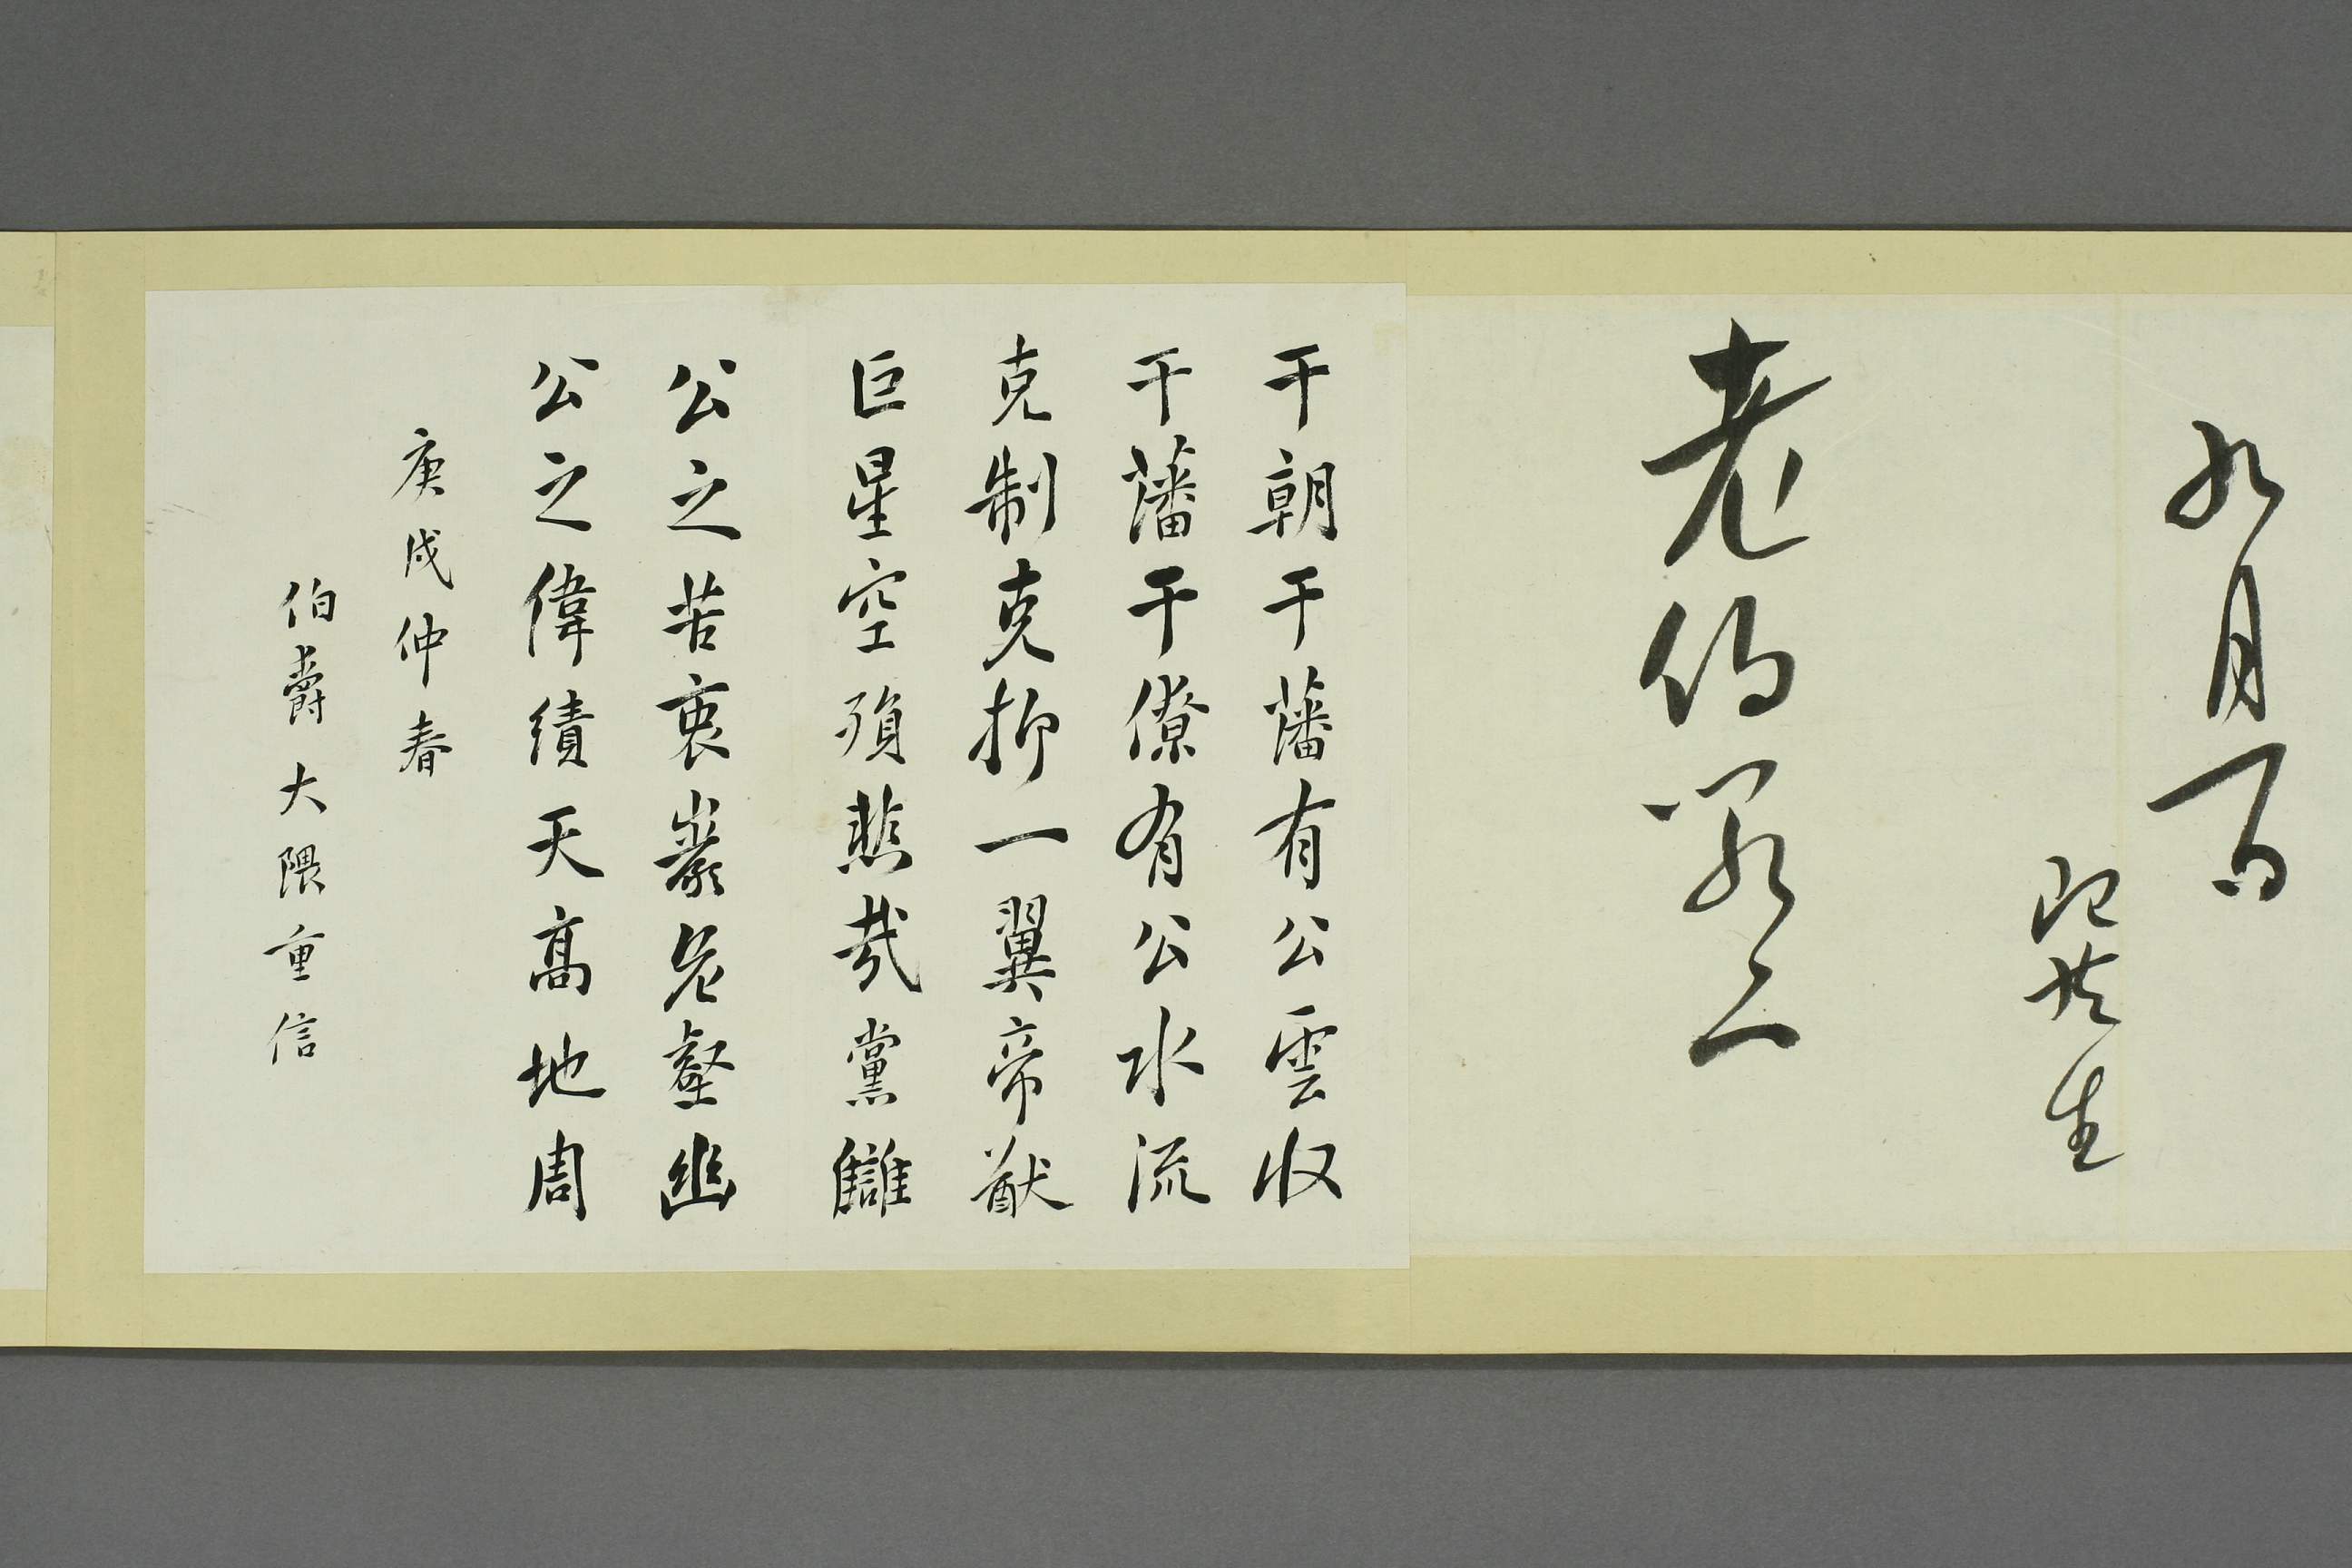 九月
生
老伯閣下
于朝于藩有公雲収
于藩于僚有公水流
克制克抑一翼帝猷
巨星空殞悲哉黨讎
公之苦衷巖危壑幽
公之偉績天髙地周
庚戌仲春
伯爵大隈重信